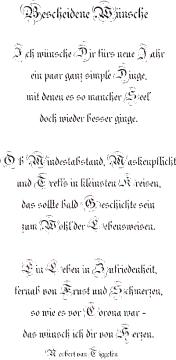 Bescheidene Wünsche
Ich wünsche Dir fürs neue Jahr
ein paar ganz simple Dinge,
mit denen es so mancher Seel'
doch wieder besser ginge.
Ob Mindestabstand, Maskenpflicht
und Treffs in kleinsten Kreisen,
das sollte bald Geschichte sein
zum Wohl der Lebensweisen.
Ein Leben in Zufriedenheit,
fernab von Ernst und Schmerzen,
so wie es vor Corona war -
das wünsch ich dir von Herzen.
Norbert van Tiggelen